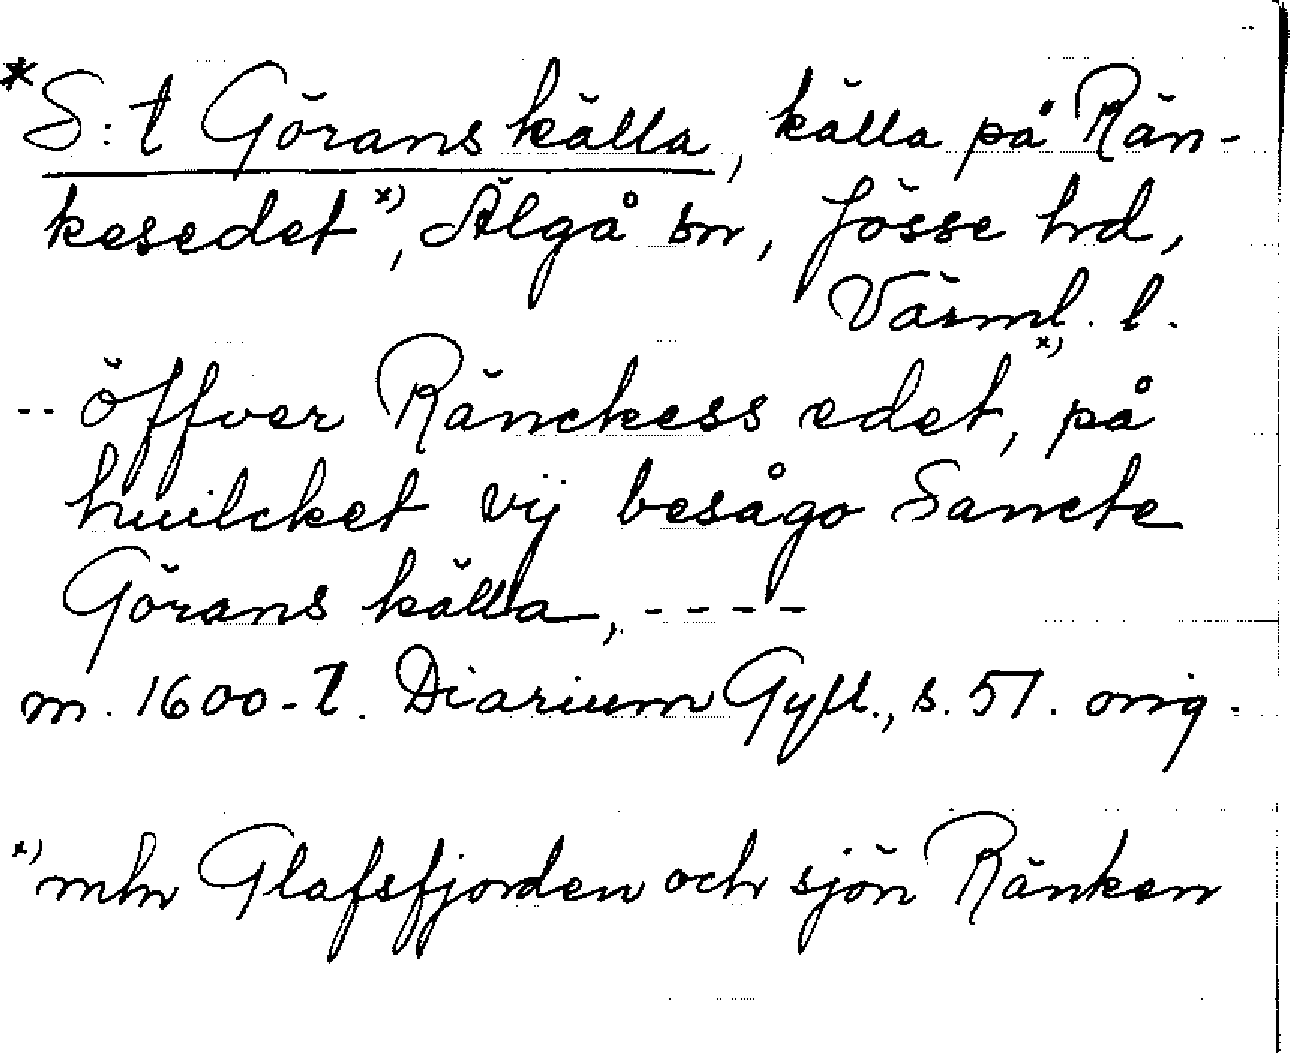 *S:t Görans källa, källa på Rän-
kesedet x), Älgå sn, Jösse hrd,
Värml. l.
-- öffver Ränckess edet x), på
huilcket vij besågo Sancte
Görans källa, ----
m. 1600-t. Diarium Gyll., s. 51. orig.
x) mln Glafsfjorden och sjön Ränken